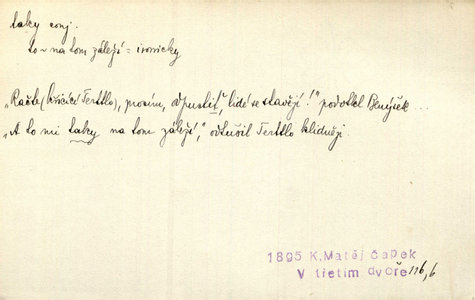 taky conj.
to ~ na tom záleží = ironicky
„Račte (křičící Terttlo), prosím, odpustit, lidé se stavějí!“ podotkl Benýšek ...
„A to mi taky na tom záleží,“ odtušil Terttlo klidněji.
1895 K.Matěj Čapek
V třetím dvoře 116,6